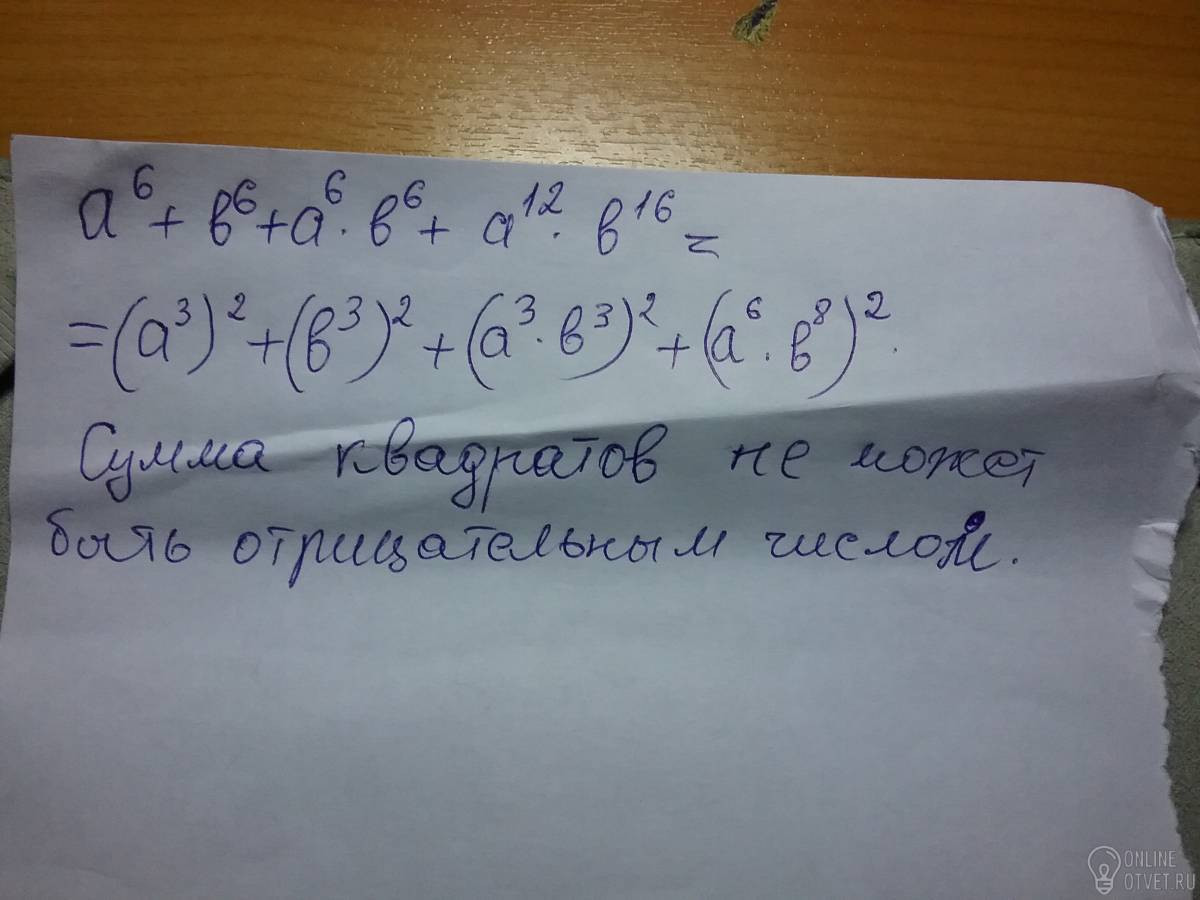 a⁶ + в⁶ + a⁶ · в⁶ + a¹² · в¹⁶ =
= (a³)² + (в³)² + (a³ · в³)² + (a⁶ · в⁸)².
Сумма квадратов не может
быть отрицательным числом.
ONLINE
OTVET.RU